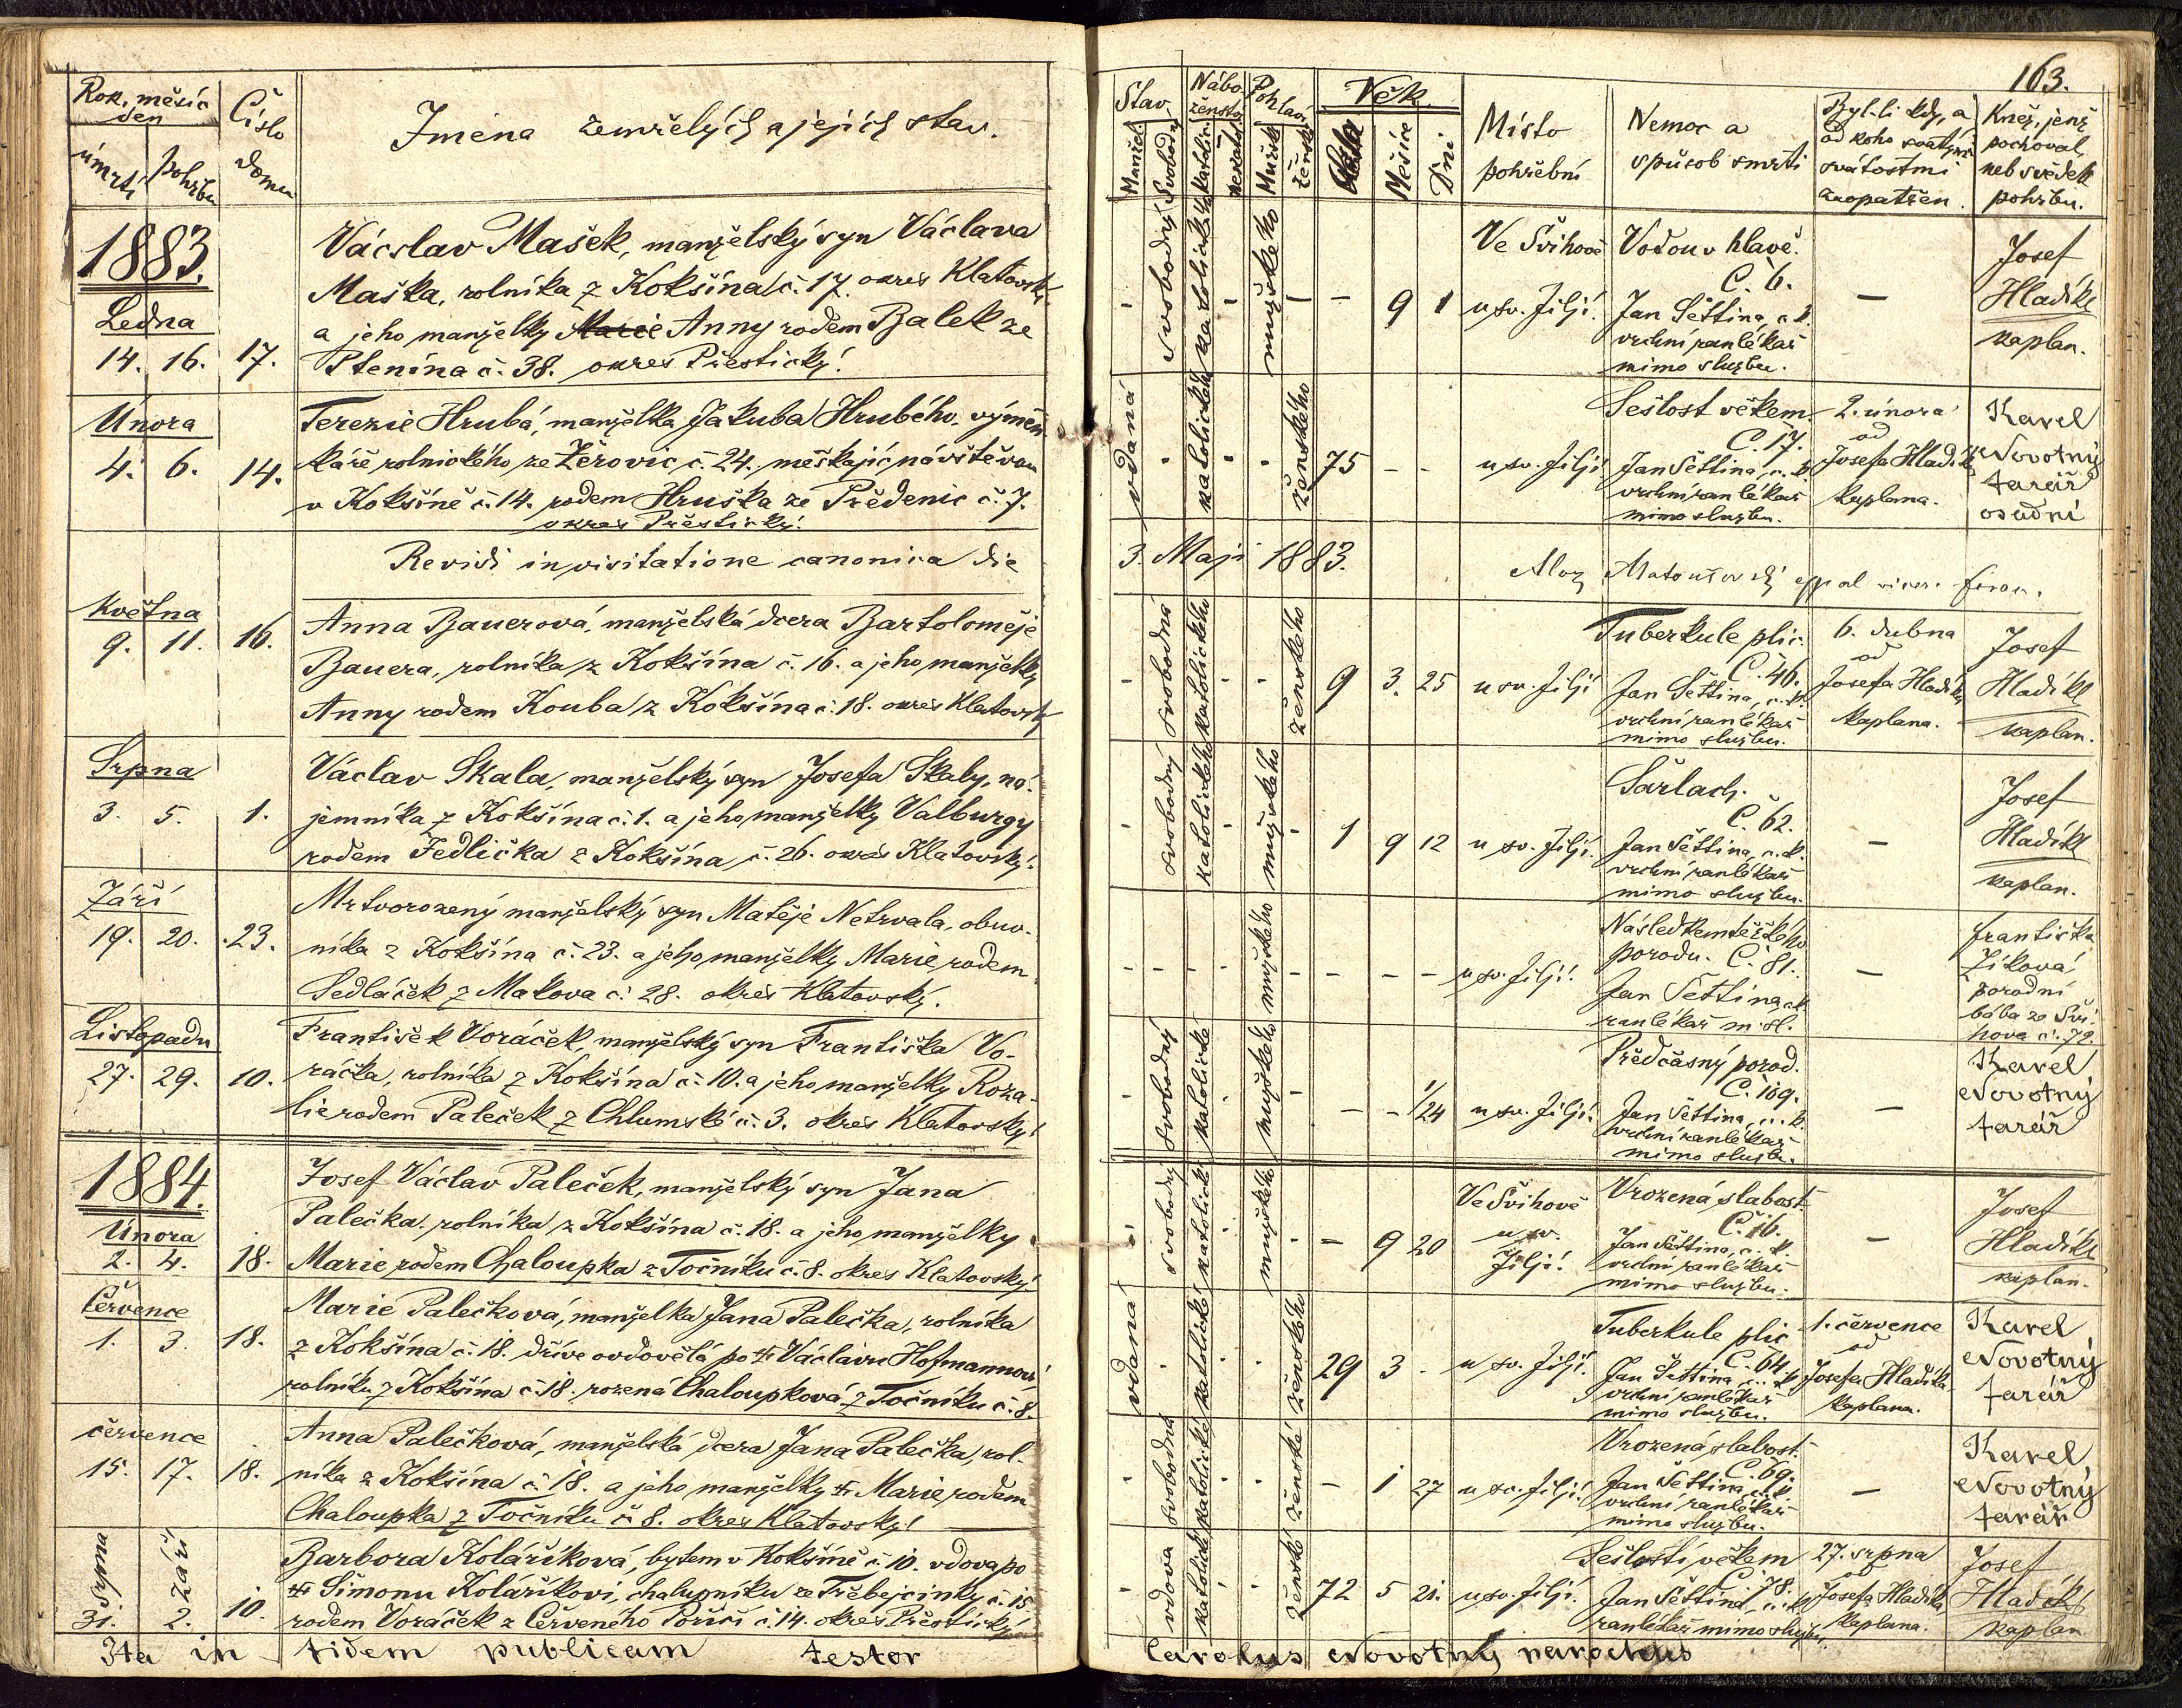 163.
Rok, měsíc
den
úmrtí
pohřbu
Číslo
domu
Jména zemřelých a jejich stav.
Stav
Manžel.
Svobodný
Nábo-
ženství
katolic.
nekatol.
Pohlaví
Mužské
žensk.
Věk.
Měsíce
Dni.
Místo
pohřební
Nemoc a
způsob smrti
Byl-li kdy, a
od koho svatými
svátostmi
zaopatřen.
Kněz, jenž
pochoval,
neb svědek
pohřbu.
1883.
Ledna
14. 16. 17.
Vácslav Mašek, manželský syn Václava
Maška, rolníka z Kokšína č. 17. okres Klatovský
a jeho manželky Marie Anny rodem Balek ze
Ptenína č. 38. okres Přestický.
- svobodný katolické - mužského - - 9 1
Ve Švihově
u sv. Jiljí.
Vodou v hlavě.
Č. 6.
Jan Šettina, c. k.
vrchní ranlékař
mimo službu.
-
Josef
Hladíkl
kaplan.
Února
4. 6. 14.
Terezie Hrubá, manželka Jakuba Hrubého, výměn-
káře rolnického, ze Žerovic č. 24. meškajíc návštěvou
v Kokšíně č. 14. rodem Hruška ze Předenic č. 7.
okres Přestický.
vdaná - katolického - - ženského 75 - -
u sv. Jiljí
Sešlost věkem.
Č. 17.
Jan Šettina, c. k.
vrchní ranlékař
mimo službu.
2. února
od
Josefa Hladíkla
kaplana.
Karel
Novotný
farář
osadní
Revidi in visitatione canonica die
3. Maji 1883.
Května
9. 11. 16.
Anna Bauerová, manželská dcera Bartoloměje
Bauera, rolníka z Kokšína č. 16. a jeho manželky
Anny rodem Kouba z Kokšína č. 18. okres Klatovský
- svobodná katolického - - ženského 9 3. 25
u sv. Jiljí
Tuberkule plic.
Č. 46.
Jan Šettina, c. k.
vrchní ranlékař
mimo službu.
6. dubna
od
Josefa Hladíkla
kaplana.
Josef
Hladíkl
kaplan.
Srpna
3. 5. 1.
Václav Skala, manželský syn Josefa Skaly, ná-
jemníka z Kokšína č. 1. a jeho manželky Valburgy
rodem Jedlička z Kokšína č. 26. okres Klatovský.
- svobodný katolického - mužského - 1 9 12
u sv. Jiljí.
Šarlach.
Č. 62.
Jan Šettina, c. k.
vrchní ranlékař
mimo službu.
-
Josef
Hladíkl
kaplan.
Září
19. 20. 23.
Mrtvorozený manželský syn Matěje Netrvala, obuv-
níka z Kokšína č. 23. a jeho manželky Marie rodem
Sedláček z Makova č. 28. okres Klatovský.
- - - - mužského - - - -
u sv. Jiljí.
Následkem těžkého
porodu. Č. 81.
Jan Šettina, c. k.
ranlékař m. sl.
-
Františka
Zíková,
porodní
bába ze Švi-
hova č. 79.
Listopadu
27. 29. 10.
František Voráček, manželský syn Františka Vo-
ráčka, rolníka z Kokšína č. 10. a jeho manželky Roza-
lie rodem Paleček z Chlumské č. 3. okres Klatovský.
- svobodný katolické - mužského - - - 1/24
u sv. Jiljí.
Předčasný porod.
Č. 109.
Jan Šettina, c. k.
vrchní ranlékař
mimo službu.
-
Karel
Novotný
farář
1884.
Února
2. 4. 18.
Josef Václav Paleček, manželský syn Jana
Palečka, rolníka z Kokšína č. 18. a jeho manželky
Marie rodem Chaloupka z Točníku č. 8. okres Klatovský.
- svobodný katolické - mužského - - 9 20
Ve Švihově
u sv.
Jiljí.
Vrozená slabost
Č. 16.
Jan Šettina, c. k.
vrchní ranlékař
mimo službu.
-
Josef
Hladíkl
kaplan.
Července
1. 3. 18.
Marie Palečková, manželka Jana Palečka, rolníka
z Kokšína č. 18. dříve ovdovělá po † Václavu Hofmannovi,
rolníku z Kokšína č. 18. rozená Chaloupková z Točníku č. 8.
vdaná - katolické - - ženského 29 3 -
u sv. Jiljí.
Tuberkule plic
Č. 64.
Jan Šettina, c. k.
vrchní ranlékař
mimo službu.
1. července
od
Josefa Hladíkla
kaplana.
Karel
Novotný
farář
července
15. 17. 18.
Anna Palečková, manželská dcera Jana Palečka, rol-
níka z Kokšína č. 18. a jeho manželky † Marie rodem
Chaloupka z Točníku č. 8. okres Klatovský.
- svobodná katolické - - ženské - 1 27
u sv. Jiljí.
Vrozená slabost.
Č. 69.
Jan Šettina, c. k.
vrchní ranlékař
mimo službu.
-
Karel
Novotný
farář
srpna září
31. 2. 10.
Barbora Koláříková, bytem v Kokšíně č. 10. vdova po
† Šimonu Koláříkovi, chalupníku ze Třebejcinky č. 15
rodem Voráček z Červeného Poříčí č. 14. okres Přestický
- vdova katolické - - ženské 72 5 21.
u sv. Jiljí.
Sešlostí věkem
Č. 78.
Jan Šettina, c. k.
ranlékař mimo službu.
27. srpna
od
Josefa Hladíkla
kaplana.
Josef
Hladíkl
kaplan
Ita in fidem publicam testor
Carolus Novotný parochus